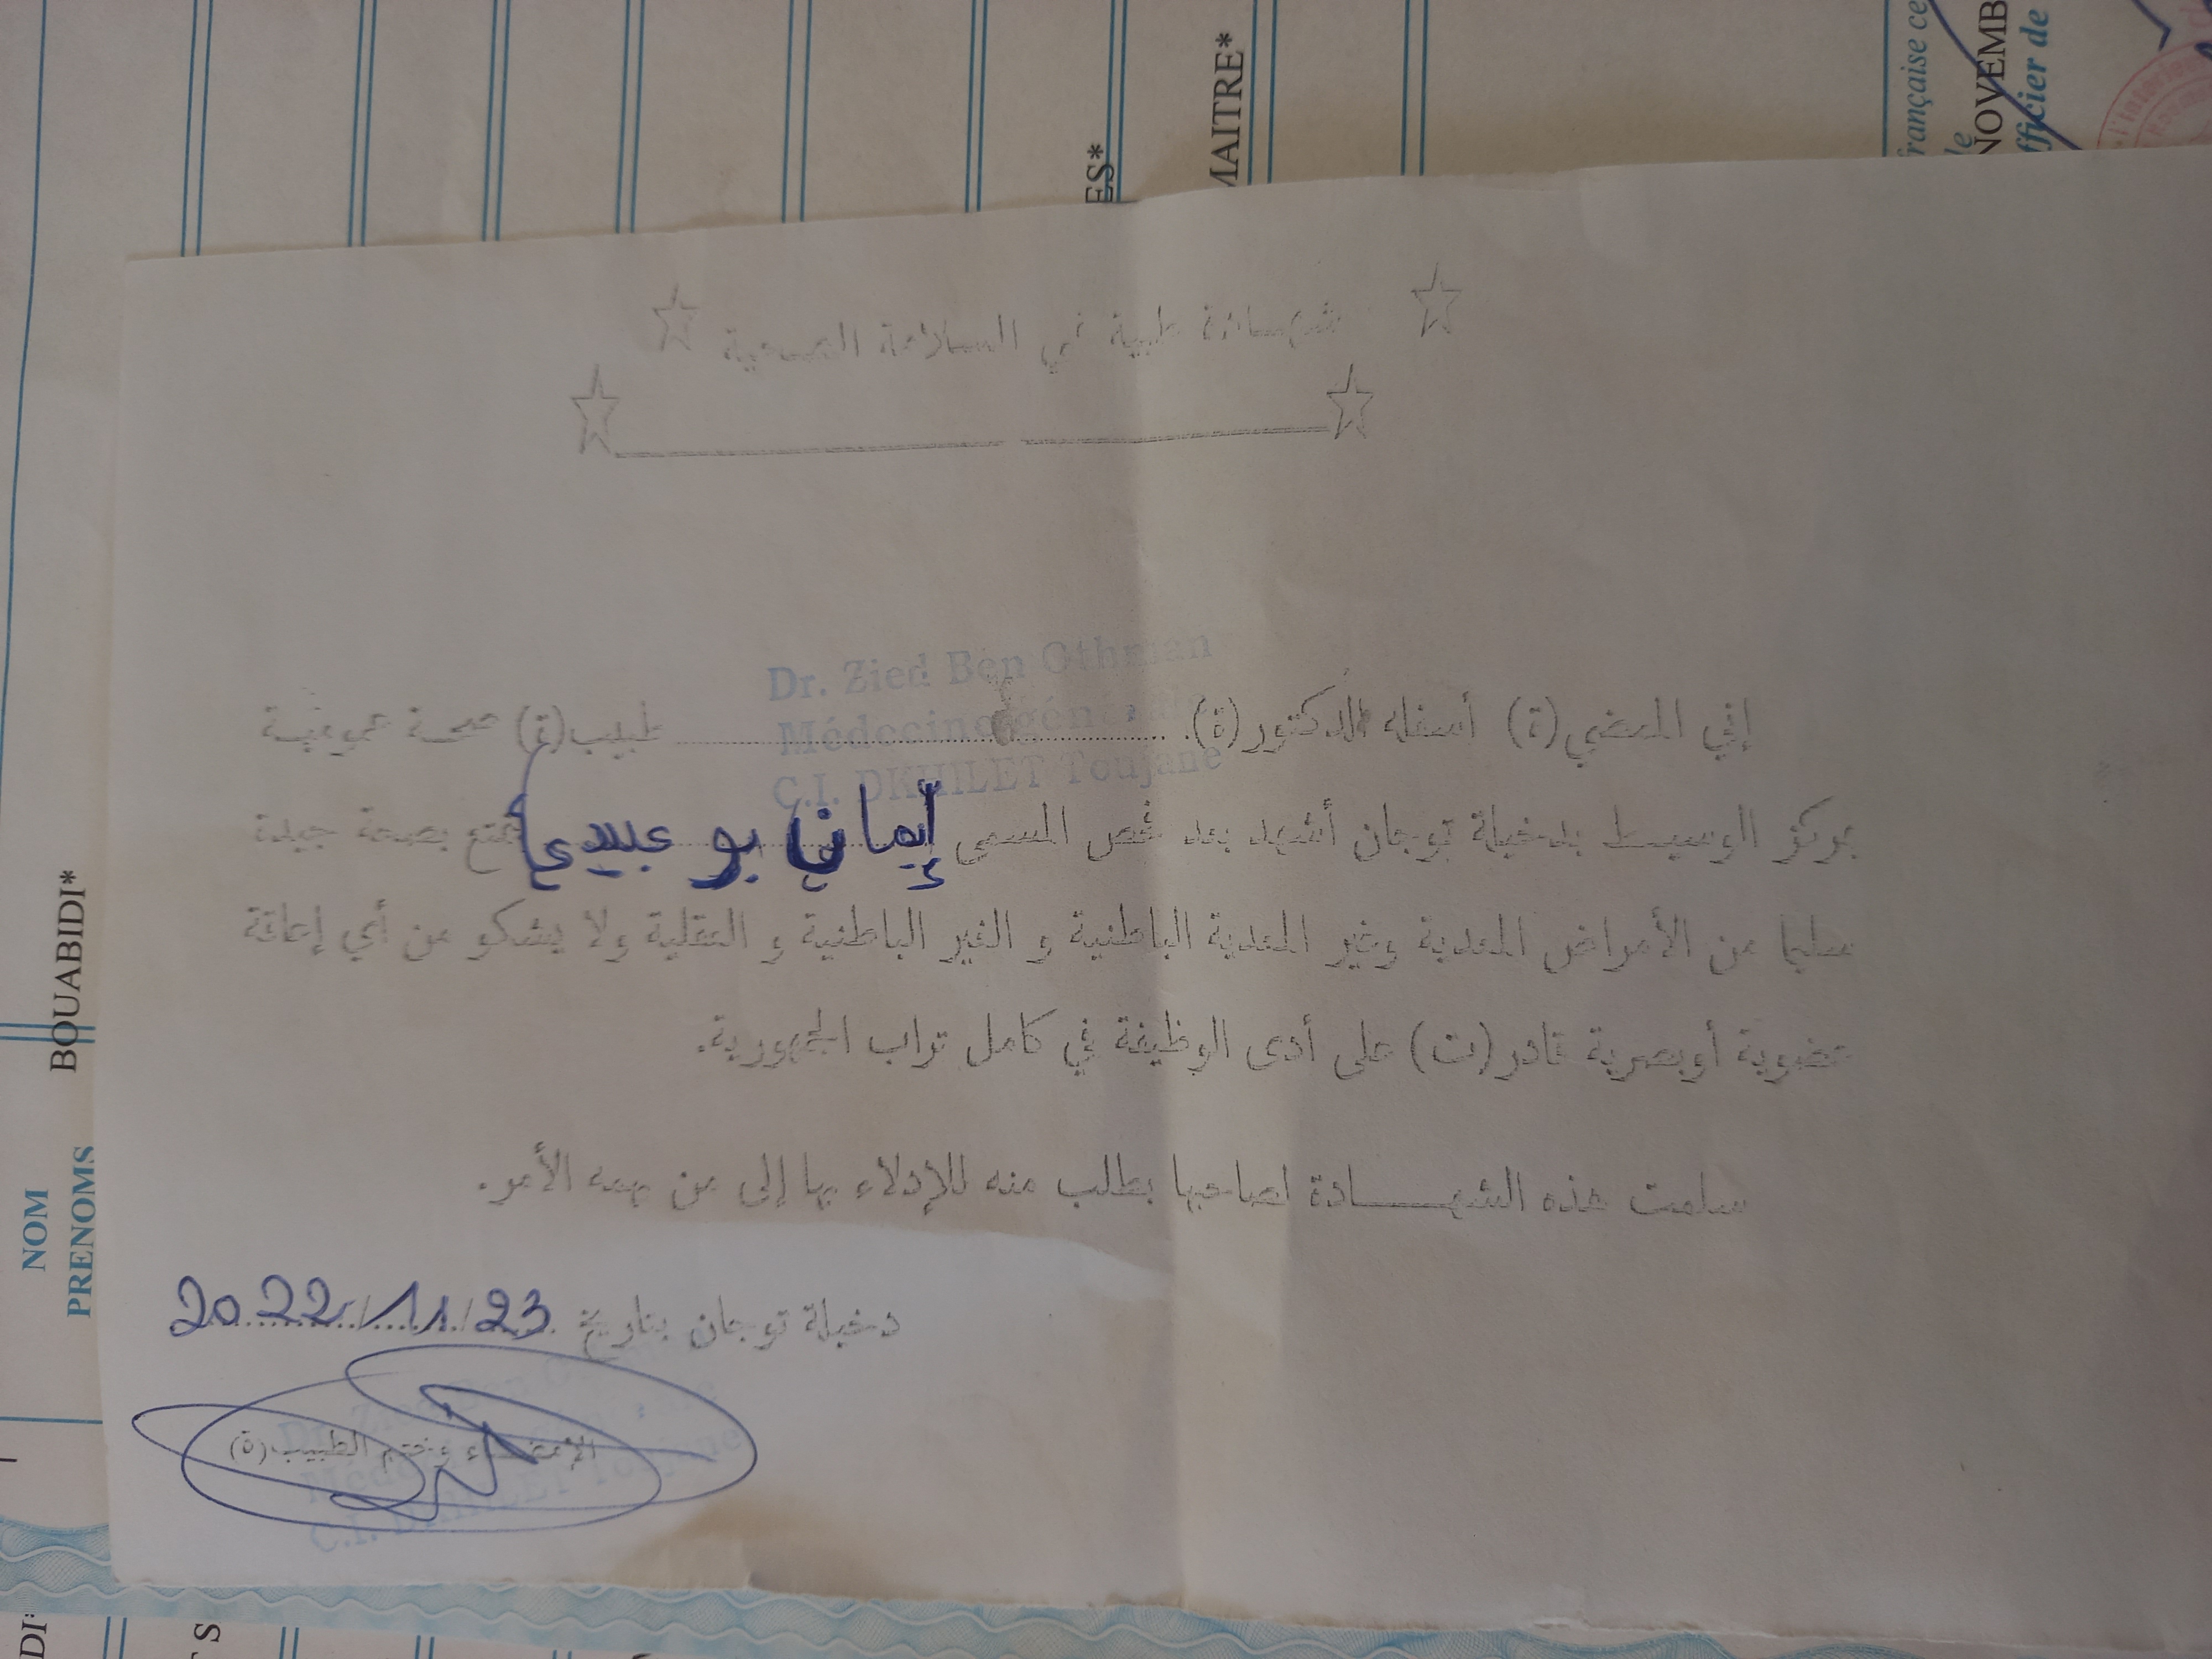 ES*
MAITRE*
française ce
le
NOVEMB
fficier de
شهادة طبية في السلامة الصحية
Dr. Zied Ben Othman
Médecine générale
C.I. DKHILET Toujane
إني الممضي(ة) أسفله الدكتور(ة). طبيب(ة) صحة عمومية
بمركز الوسيط بدخيلة توجان أشهد بعد فحص المسمى إيمان بو عبيدي يتمتع بصحة جيدة
سليما من الأمراض المعدية وغير المعدية الباطنية و الغير الباطنية و العقلية ولا يشكو من أي إعاقة
عضوية أوبصرية قادر(ت) على أدى الوظيفة في كامل تراب الجمهورية.
سلمت هذه الشهـــــادة لصاحبها بطلب منه للإدلاء بها إلى من يهمه الأمر.
دخيلة توجان بتاريخ 23/11/2022
الإمضـــاء وختم الطبيب(ة)
Dr. Zied Ben
C.I. DKHILET Toujane
NOM BOUABIDI*
PRENOMS
DI*